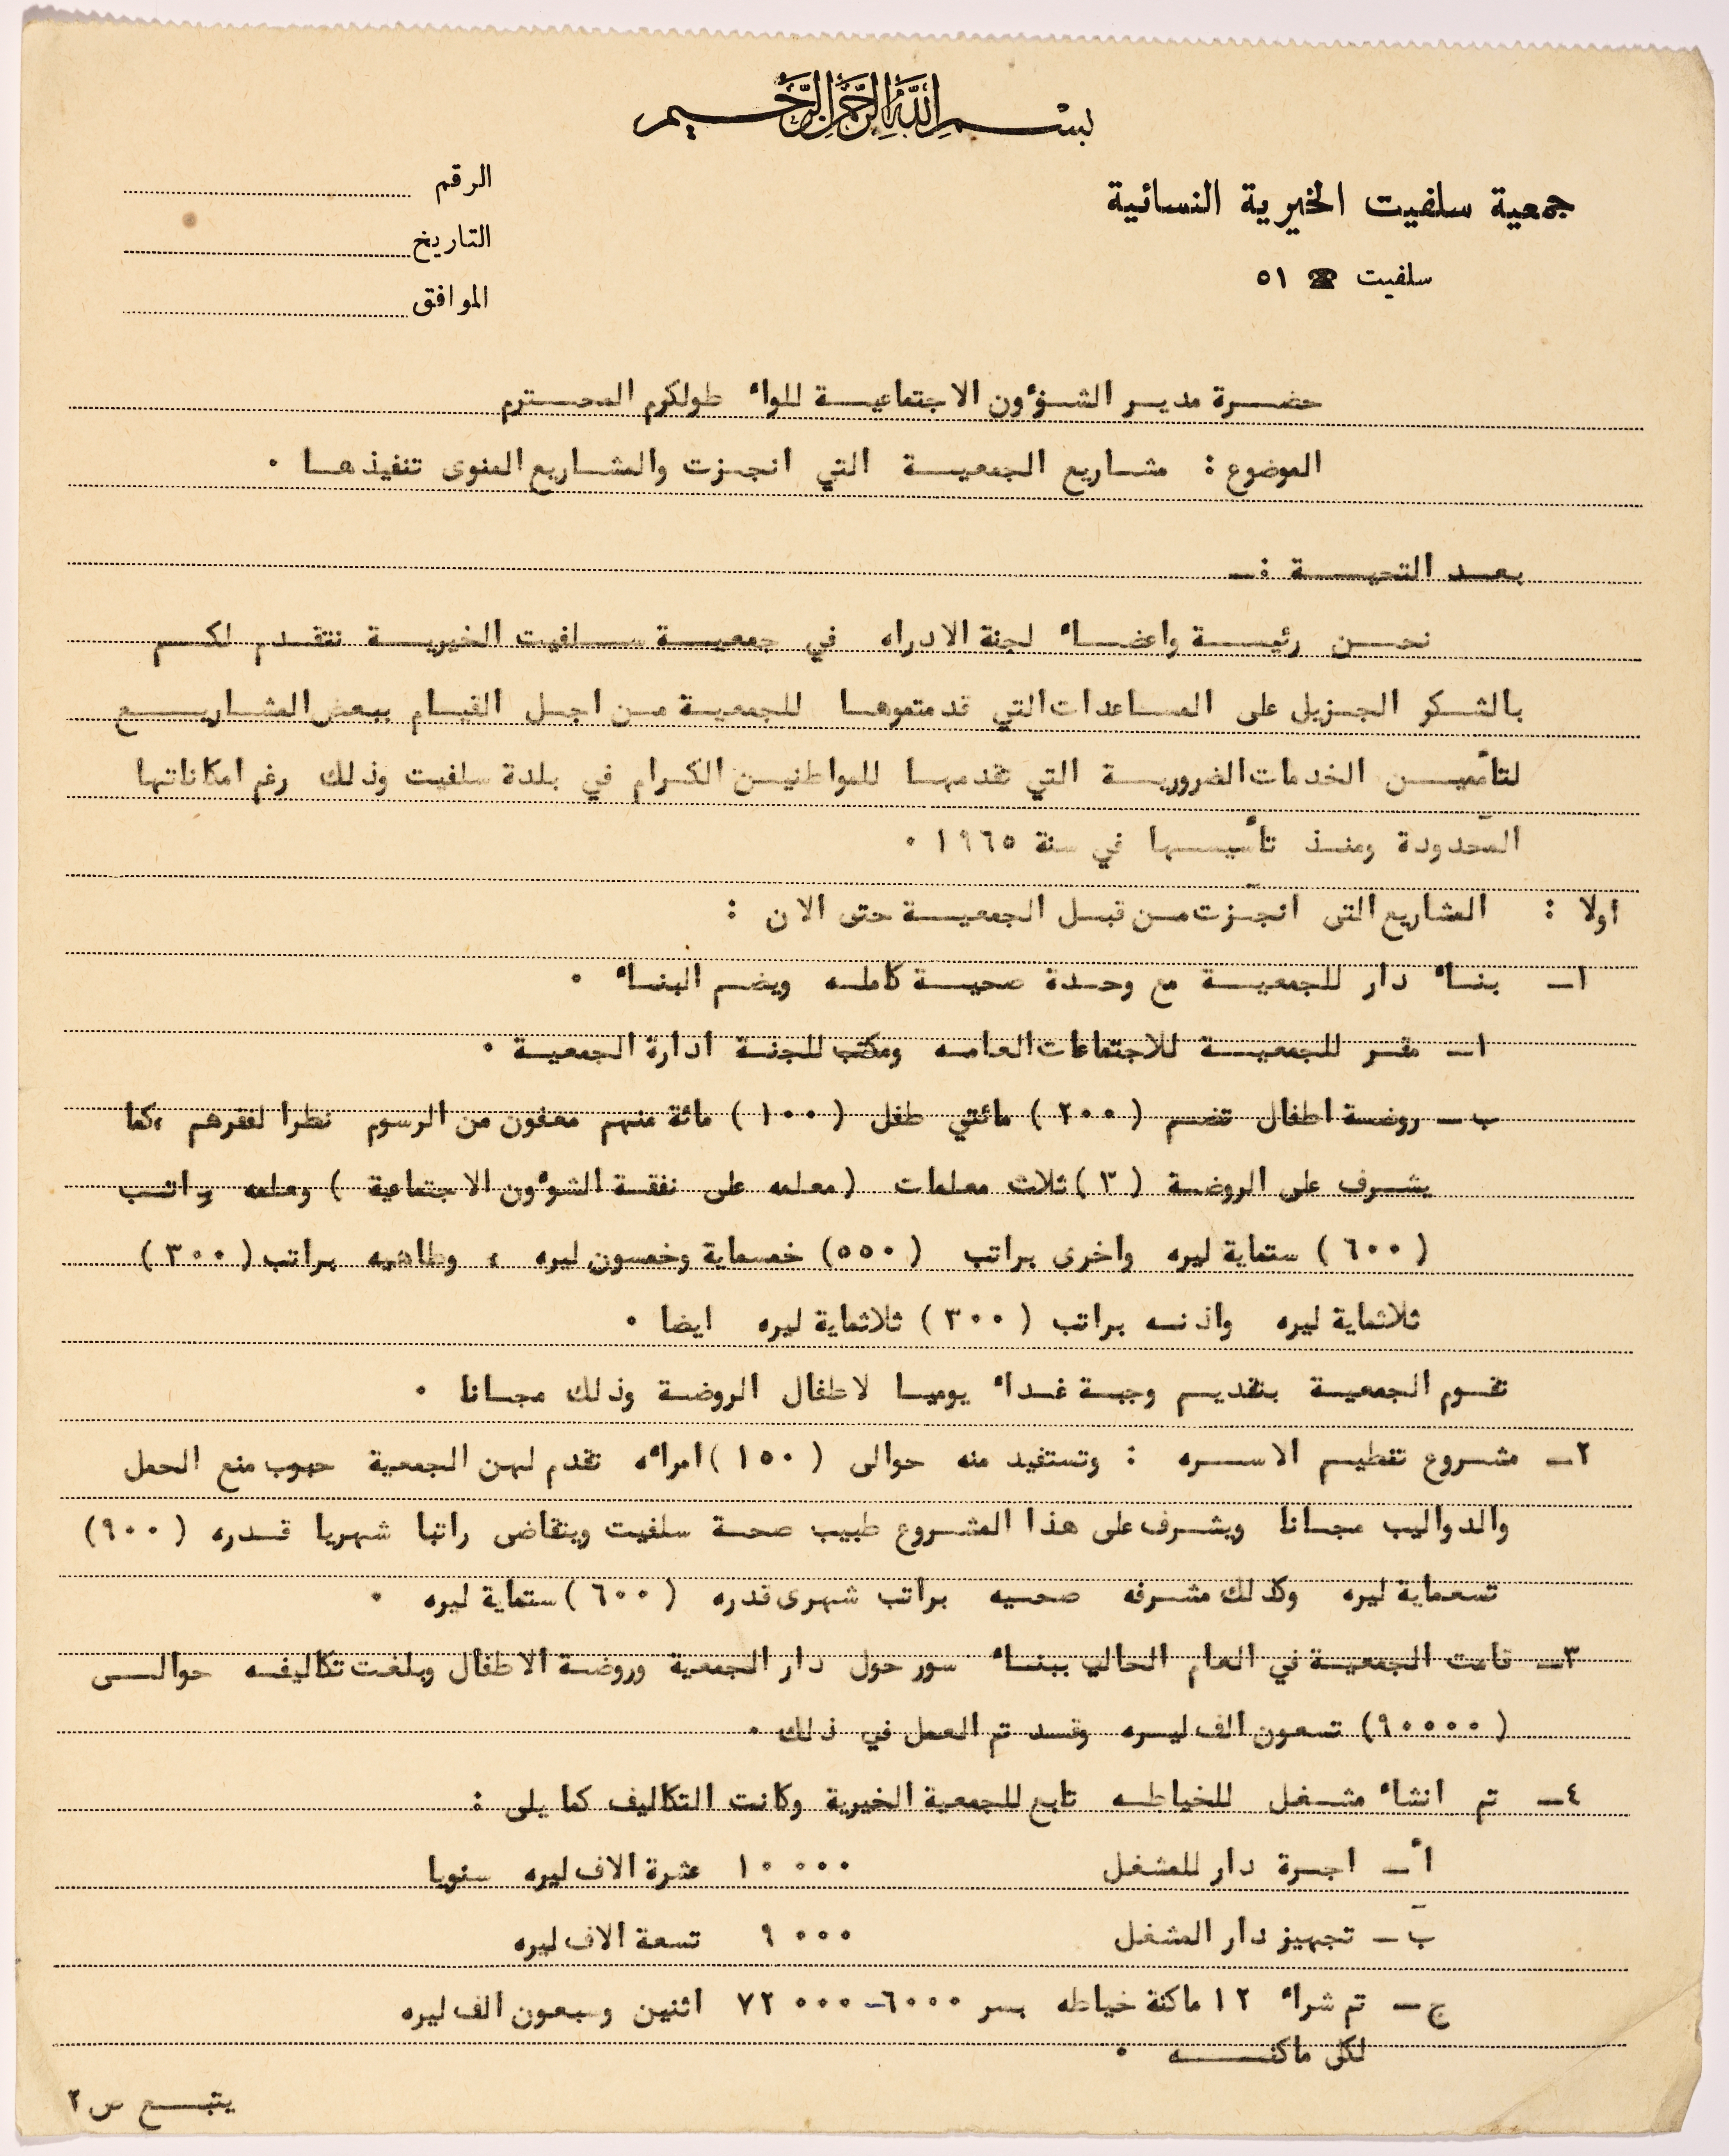 بسم الله الرحمن الرحيم
جمعية سلفيت الخيرية النسائية
سلفيت ☎ ٥١
الرقم
التاريخ
الموافق
حضرة مدير الشؤون الاجتماعية للواء طولكرم المحترم
الموضوع : مشاريع الجمعية التي انجزت والمشاريع المنوى تنفيذها ٠
بعد التحية :ـ
نحن رئيسة واعضاء لجنة الادراه في جمعية سلفيت الخيرية نتقدم لكم
بالشكر الجزيل على المساعدات التي قدمتموها للجمعية من اجل القيام ببعض المشاريع
لتأميين الخدمات الضرورية التي تقدمها للمواطنين الكرام في بلدة سلفيت وذلك رغم امكاناتها
المحدودة ومنذ تأسيسها في سنة ١٩٦٥ ٠
اولا : المشاريع التى انجزت من قبل الجمعية حتى الان :
١ـ بناء دار للجمعية مع وحدة صحية كامله ويضم البناء ٠
ا ـ مقر للجمعية للاجتماعات العامه ومكتب للجنة ادارة الجمعية ٠
ب ـ روضة اطفال تضم ( ٢٠٠ ) مائتي طفل ( ١٠٠ ) مائة منهم معفون من الرسوم نظرا لفقرهم ،كما
يشرف على الروضة ( ٣ ) ثلاث معلمات ( معلمه على نفقة الشؤون الاجتماعية ) ومعلمه براتب
( ٦٠٠ ) ستماية ليره واخرى براتب ( ٥٥٠ ) خمسماية وخمسون ليره ، وطاهيه براتب ( ٣٠٠ )
ثلاثماية ليره واذنه براتب ( ٣٠٠ ) ثلاثماية ليره ايضا ٠
تقوم الجمعية بتقديم وجبة غداء يوميا لاطفال الروضة وذلك مجانا ٠
٢ـ مشروع تنظيم الاسره : وتستفيد منه حوالى ( ١٥٠ ) امرأه تقدم لهن الجمعية حبوب منع الحمل
والدواليب مجانا ويشرف على هذا المشروع طبيب صحة سلفيت ويتقاضى راتبا شهريا قدره ( ٩٠٠ )
تسعماية ليره وكذلك مشرفه صحيه براتب شهرى قدره ( ٦٠٠ ) ستماية ليره ٠
٣ـ قامت الجمعية في العام الحالي ببناء سور حول دار الجمعية وروضة الاطفال وبلغت تكاليفه حوالى
( ٩٠٠٠٠ ) تسعون الف ليره وقد تم العمل في ذلك ٠
٤ـ تم انشاء مشغل للخياطه تابع للجمعية الخيرية وكانت التكاليف كما يلى :
أ ـ اجرة دار للمشغل ١٠٠٠٠ عشرة الاف ليره سنويا
ب ـ تجهيز دار المشغل ٩٠٠٠ تسعة الاف ليره
ج ـ تم شراء ١٢ ماكنة خياطه بسر ٦٠٠٠ـ ٧٢٠٠٠ اثنين وسبعون الف ليره
لكل ماكنه ٠
يتبع ص ٢